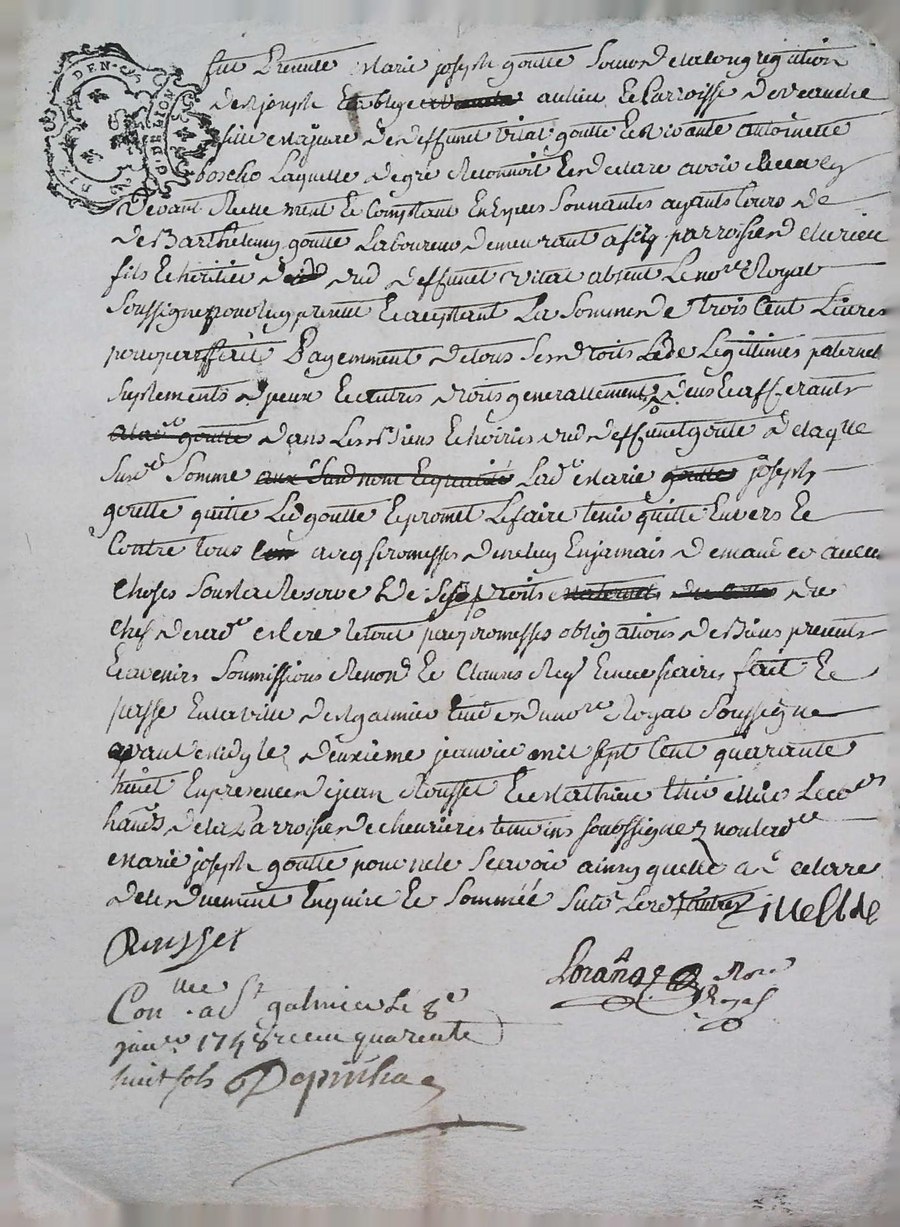 SIX DEN. G. D. DE LION
fut presente Marie joseph goutte soeur de la Congregation
de St joseph Etablye au lieu Et Parroisse de veauche
fille majeure de deffunct vital goutte Et vivante antoinette
boscho Laquelle de gré Reconnoit Et declare avoir Receu
devant Et Comptant En Espees Sonnantes ayants Cours de
de Barthelemy goutte Laboureur demeurant a parroisse
fils Et heritier dud deffunct vital absent Le nore Royal
Soussigné pour luy present Et aceptant La Somme de trois Cent Livres
pour parffait Payemment de tous Ses droits de Legitimes paternel
Suplements d'yceux Et autres droits generallements deus Et afferants
alad goutte dans Les Biens Et hoiries dud deffunct goutte de laqlle
Susde Somme Lade Marie goutte joseph
goutte quitte Led goutte Et promet Le faire tenir quitte Envers Et
Contre tous avec promesses de ne luy En jamais demander aucu
choses Sous la Reserve de Ses droits maternels du
chef de sade Mere Le tout par promesses obligations de Biens presents
Et avenirs Soumissions Renond Et Clauses Req Et necessaires fait Et
passé En la ville de St galmier Etude du nore Royal Soussigné
avant midy le deuxieme janvier mil sept Cent quarante
huict En presence de jean Rousset Et Mathieu
de la Parroisse de chevrieres temoins soussignez non lade
Marie joseph goutte pour ne le Scavoir ainsy quelle a declaré
de ce duement Enquise Et Sommée
Rousset
Lorange Nore
Royal
Conlle a St galmier Le 8e
janvr 1748 receu quarente
huit sols Depinhac